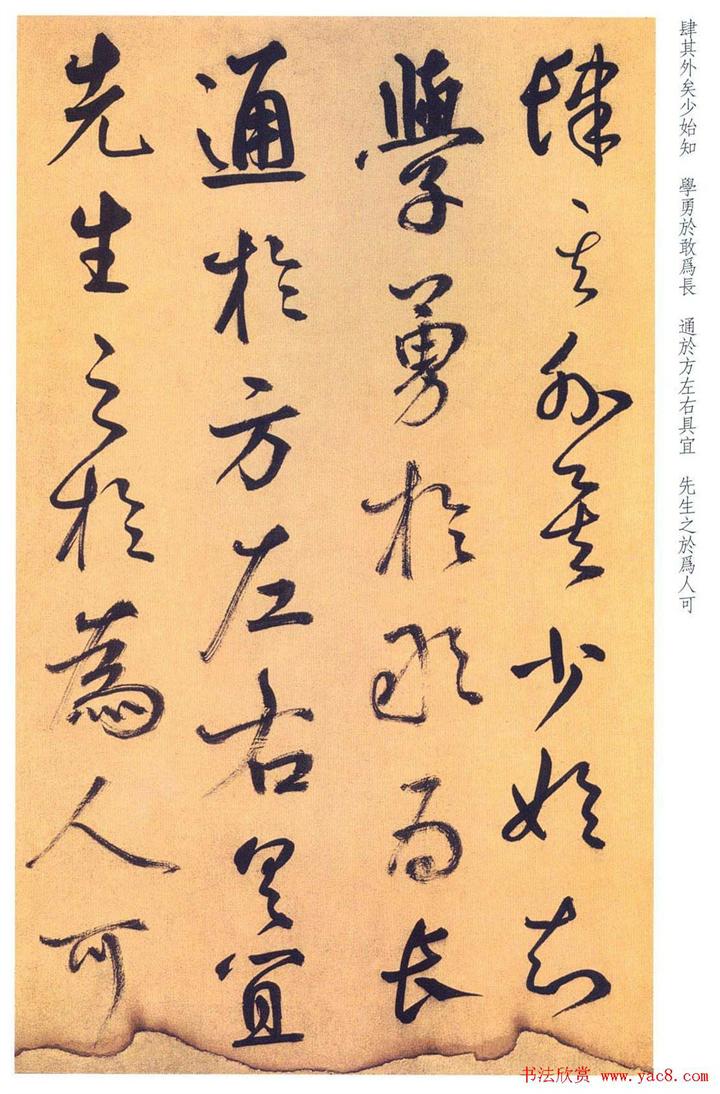 肆其外矣少始知　學勇於敢爲長　通於方左右具宜　先生之於爲人可
肆其外矣少始知
學勇於敢为長
通於方左右具宜
先生之於為人可
书法欣赏 www.yac8.com